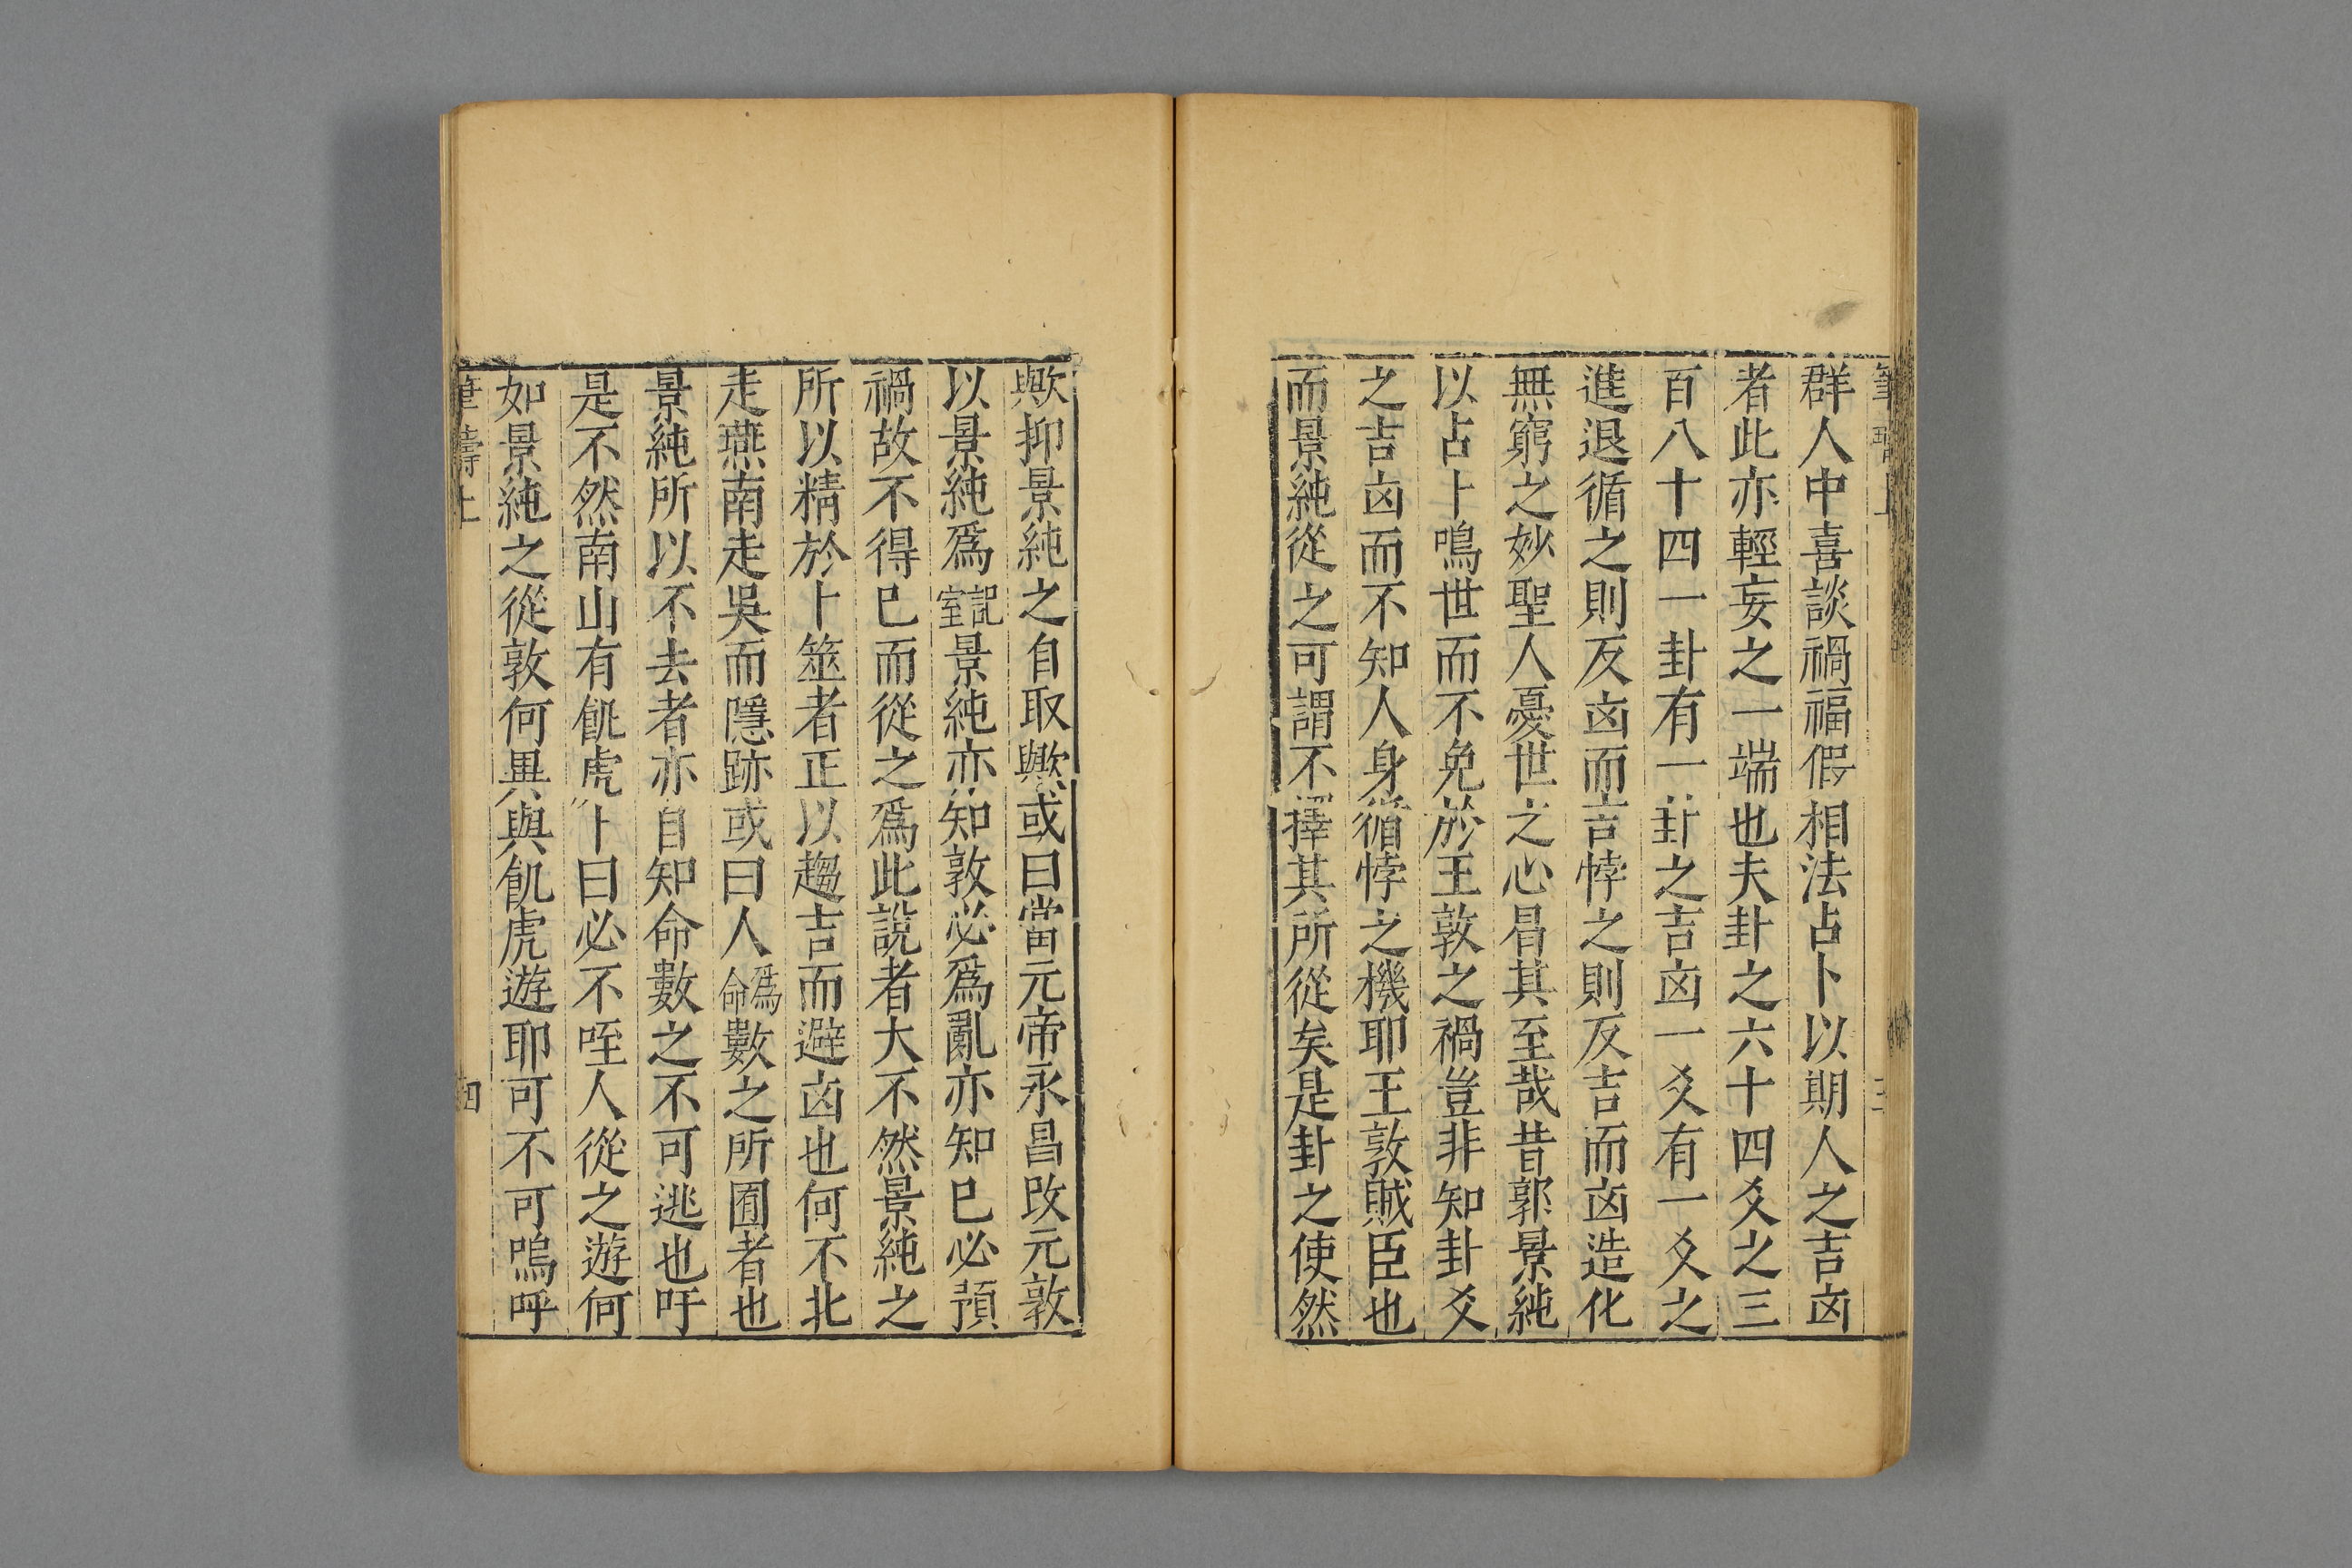 群人中喜談禍福假相法占卜以期人之吉凶
者此亦輕妄之一端也夫卦之六十四爻之三
百八十四一卦有一卦之吉凶一爻有一爻之
進退循之則反凶而言悖之則反吉而凶造化
無窮之妙聖人憂世之心昬其至哉昔郭景純
以占卜鳴世而不免於王敦之禍豈非知卦爻
之吉凶而不知人身循悖之機耶王敦賊臣也
而景純從之可謂不擇其所從矣是卦之使然
歟抑景純之自取歟或曰當元帝永昌改元敦
以景純爲記室景純亦知敦必爲亂亦知已必預
禍故不得已而從之爲此說者大不然景純之
所以精於卜筮者正以趨吉而避凶也何不北
走燕南走吳而隱跡或曰人爲命數之所囿者也
景純所以不去者亦自知命數之不可逃也吁
是不然南山有飢虎卜曰必不咥人從之遊何
如景純之從敦何異與飢虎遊耶可不可嗚呼
筆疇上
四